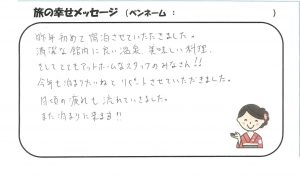 旅の幸せメッセージ (ペンネーム : )
昨年初めて宿泊させていただきました。
清潔な館内に良い温泉、美味しい料理、
そしてとてもアットホームなスタッフのみなさん!!
今年も泊まりたいねとリピートさせていただきました。
日頃の疲れも流れていきました。
また泊まりに来ます!!